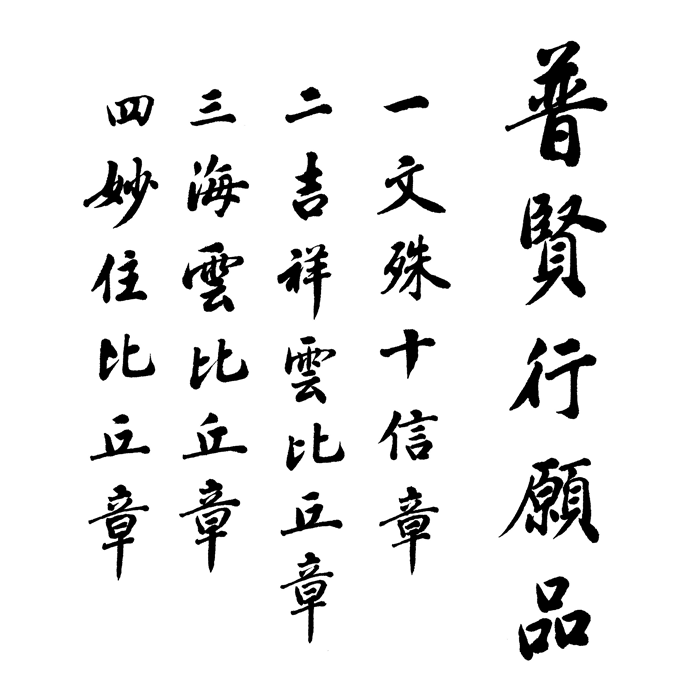 普賢行願品
一文殊十信章
二吉祥雲比丘章
三海雲比丘章
四妙住比丘章